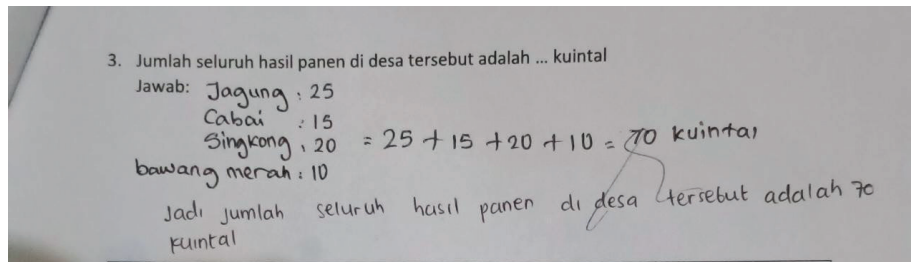 3. Jumlah seluruh hasil panen di desa tersebut adalah ... kuintal
Jawab: Jagung : 25
Cabai : 15
Singkong : 20 = 25 + 15 + 20 + 10 = 70 kuintal
bawang merah : 10
Jadi jumlah seluruh hasil panen di desa tersebut adalah 70
kuintal